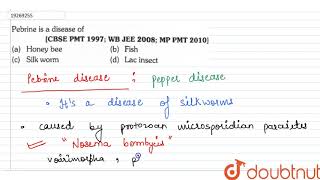 19269255
Pebrine is a disease of
[CBSE PMT 1997; WB JEE 2008; MP PMT 2010]
(a) Honey bee (b) Fish
(c) Silk worm (d) Lac insect
Pebrine disease : pepper disease
• It's a disease of silkworms
• caused by protozoan microsporidian parasites
"Nosema bombycis"
vairimorpha , p
doubtnut